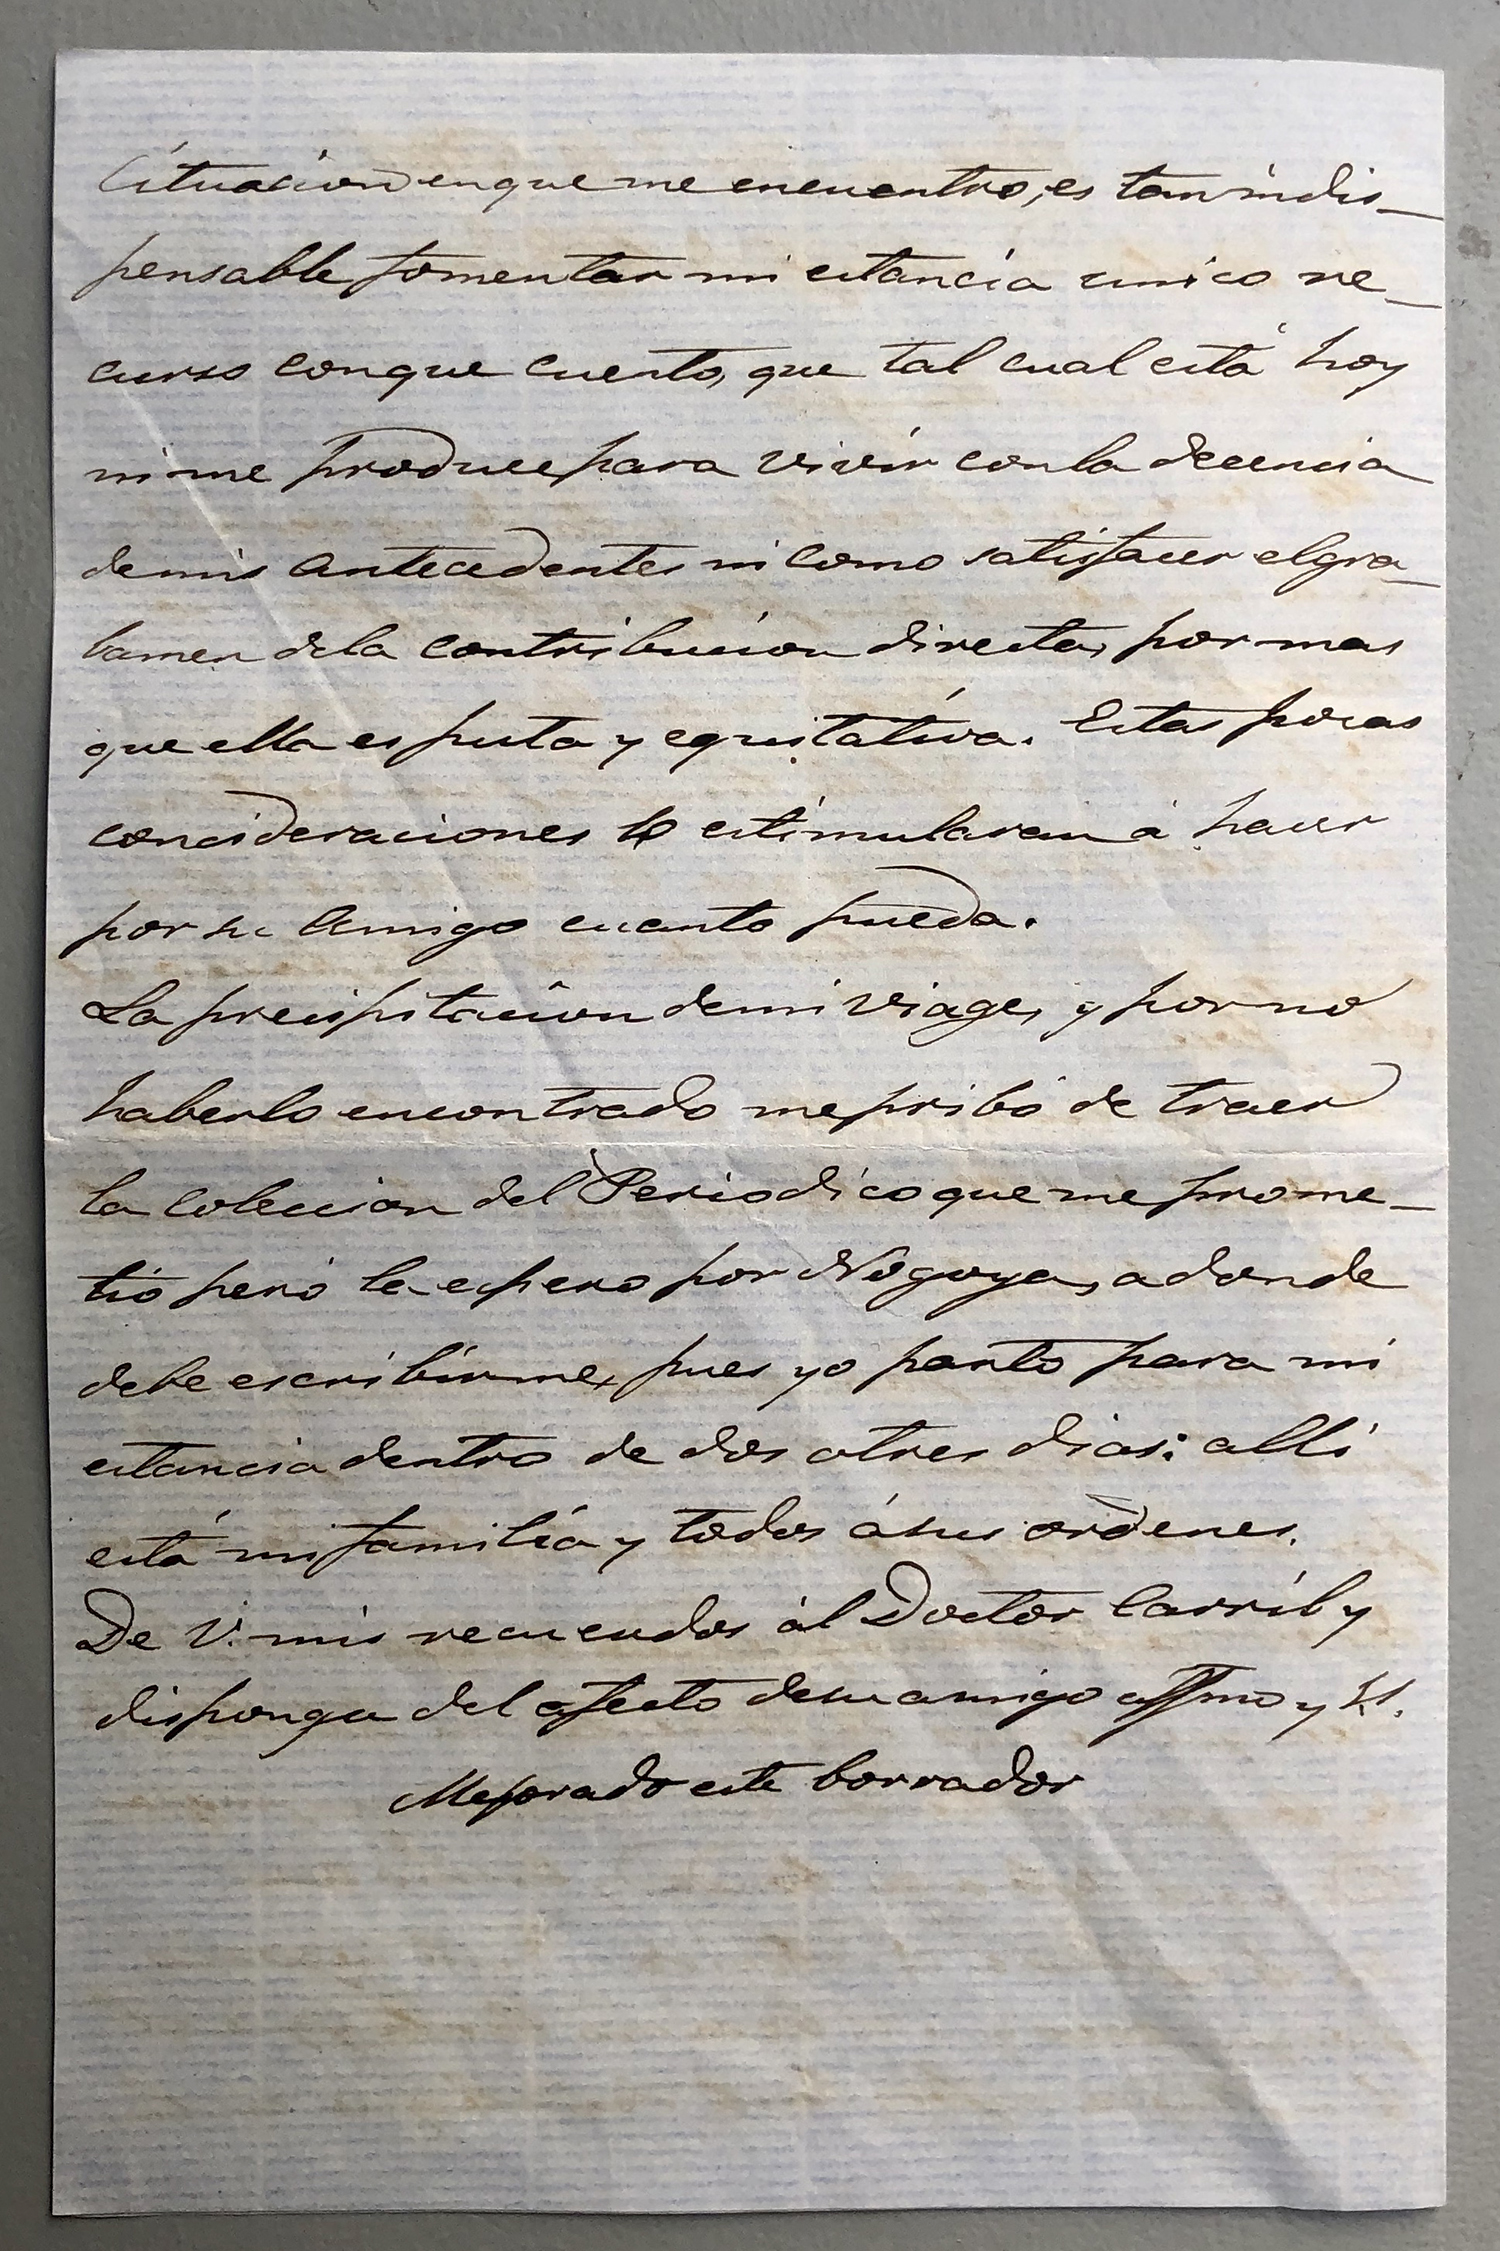 Cituación en que me encuentro, es tan indis_
pensable fomentar mi estancia unico re_
curso con que cuento, que tal cual está hoy
ni me produce para vivir con la decencia
de mis antecedentes ni como satisfacer el gra_
bamen de la contribucion directa, por mas
que ella es justa y equitativa. Estas pocas
concideraciones lo estimularan á hacer
por su amigo cuanto pueda.
La precipitacion de mi viage, y por no
haberlo encontrado me pribó de traer
la coleccion del Periodico que me prome_
tió pero la espero por Nogoya, a donde
debe escribirme, pues yo parto para mi
estancia dentro de dos o tres dias: alli
está mi familia y todos á sus ordenes.
De V. mis recuerdos al Doctor Carril y
disponga del afecto de su amigo affmo y S.S.
Mejorado este borrador